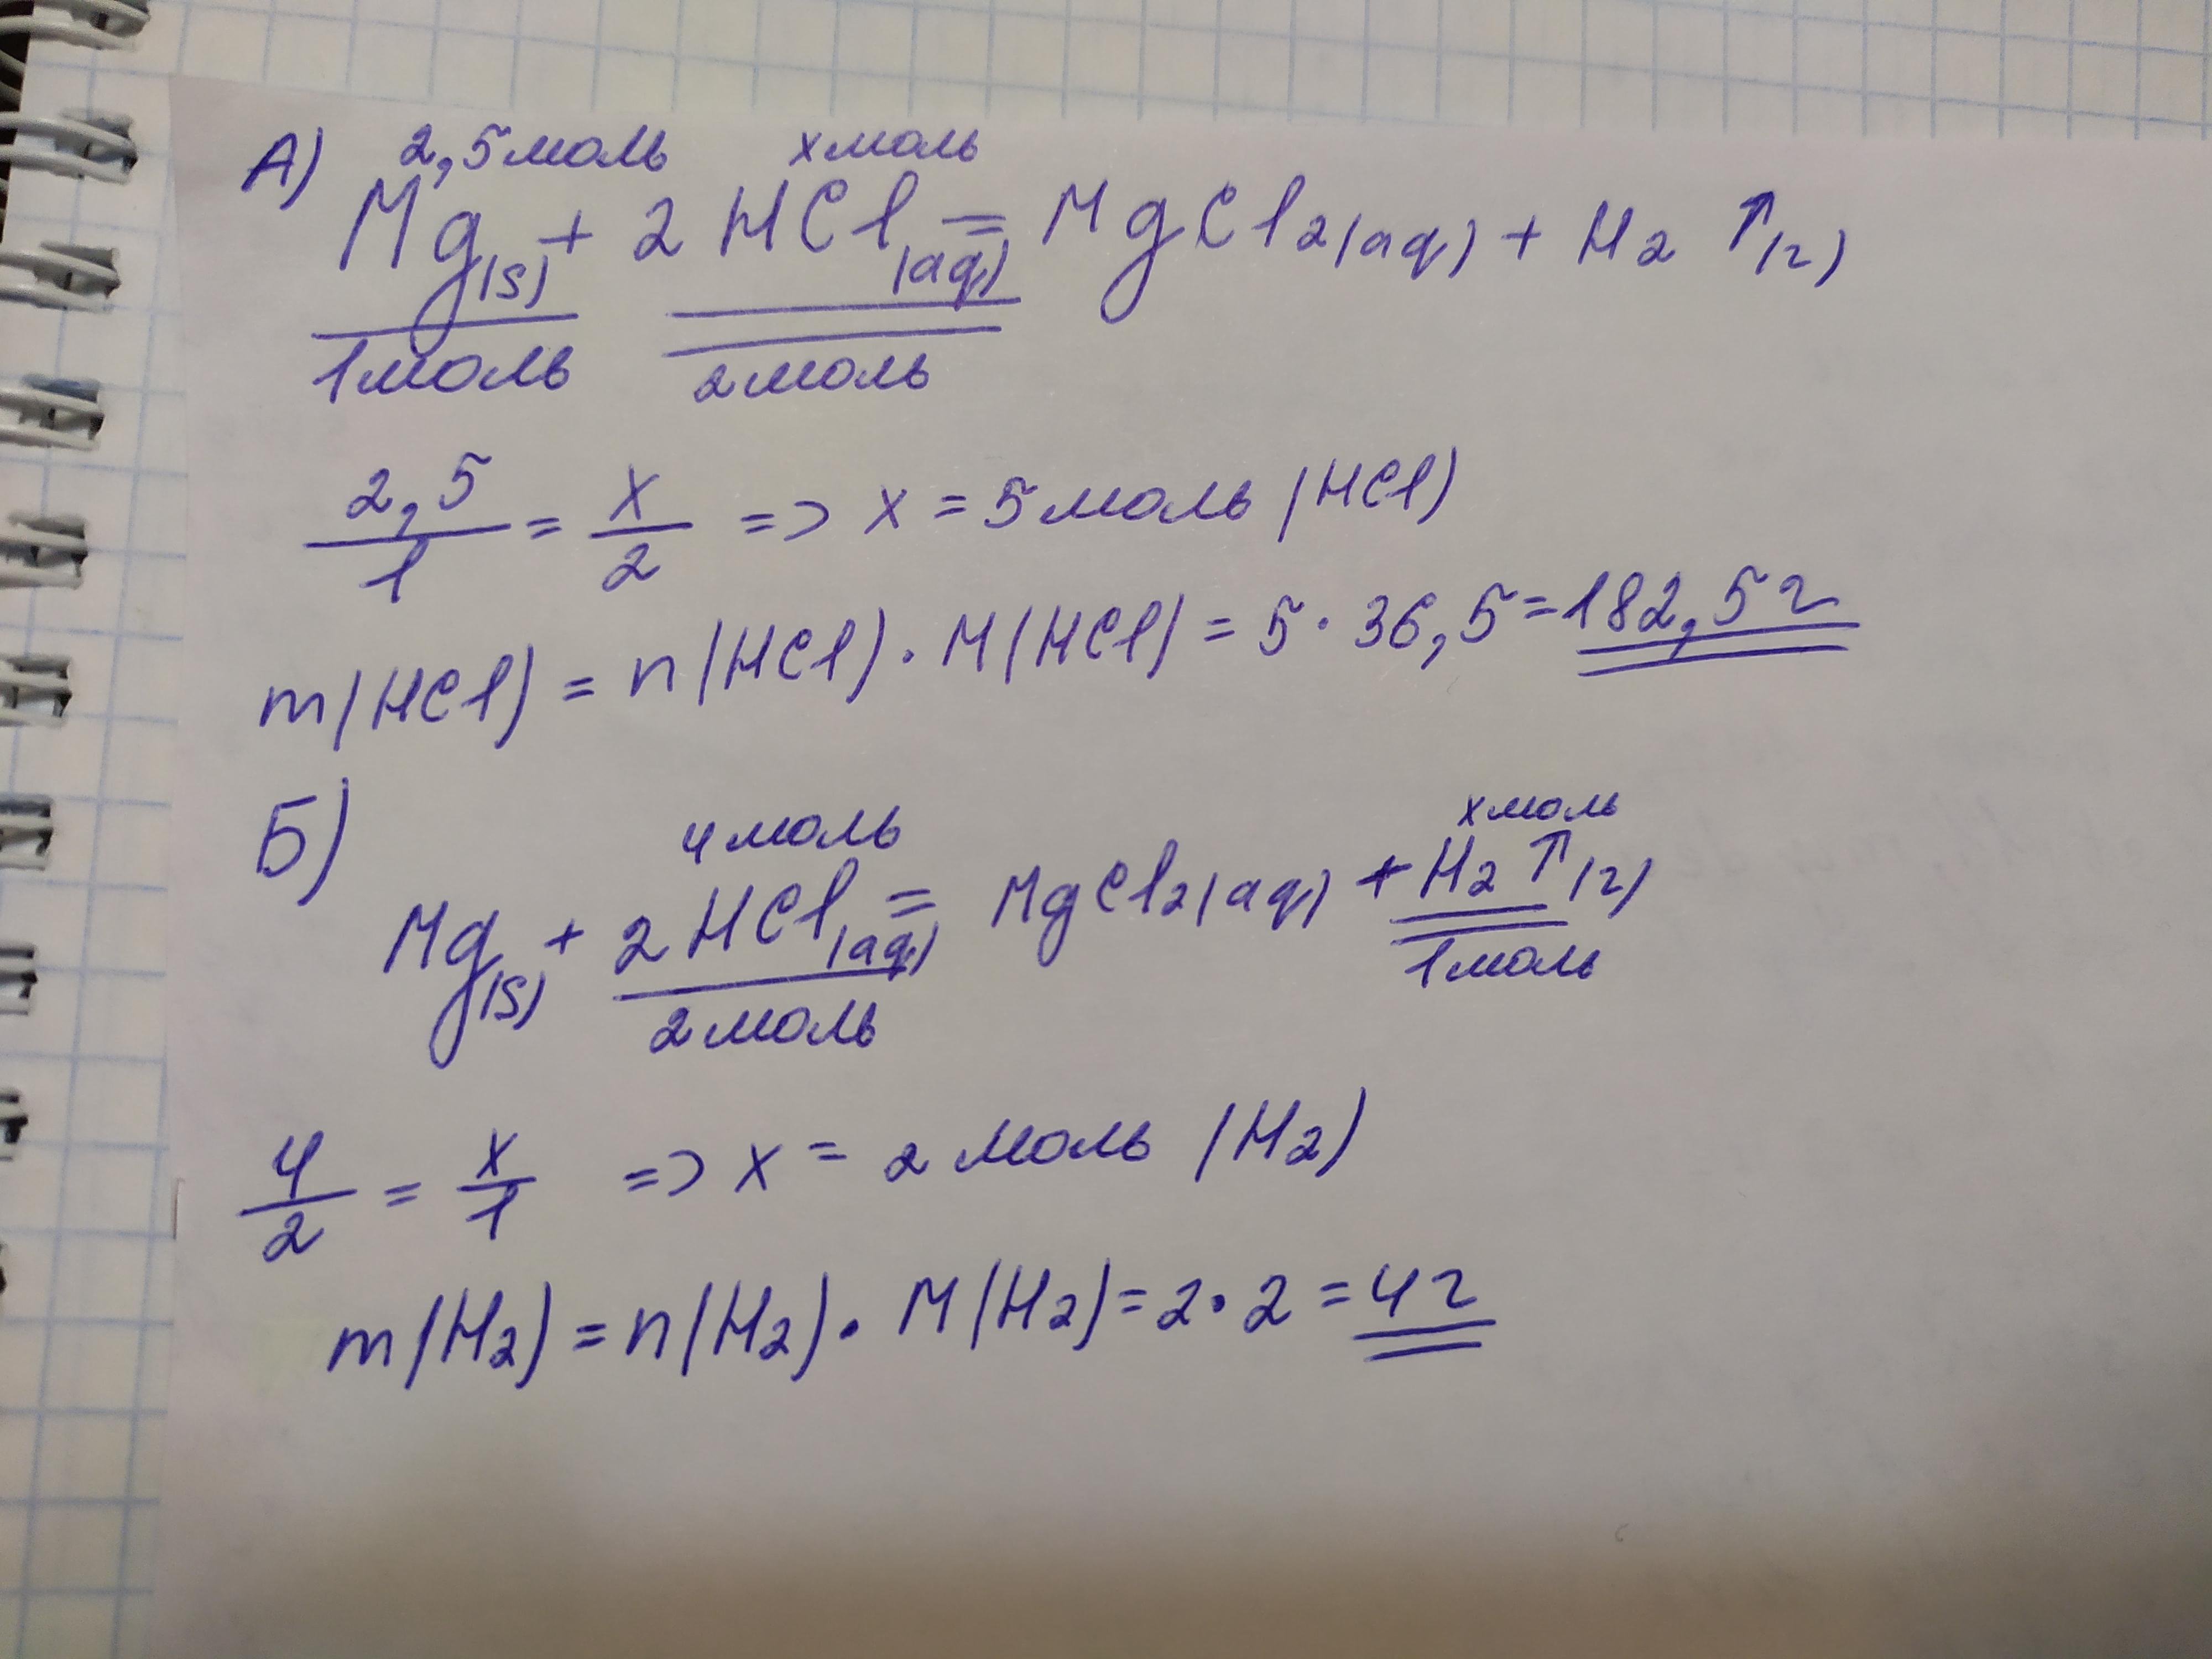 А) 2,5моль xмоль
Mg(s) + 2 HCl(aq) = MgCl2(aq) + H2 ↑(г)
1моль 2моль
2,5/1 = x/2 => x = 5 моль (HCl)
m(HCl) = n(HCl) · M(HCl) = 5 · 36,5 = 182,5г
Б) 4моль xмоль
Mg(s) + 2 HCl(aq) = MgCl2(aq) + H2 ↑(г)
2моль 1моль
4/2 = x/1 => x = 2 моль (H2)
m(H2) = n(H2) · M(H2) = 2 · 2 = 4г